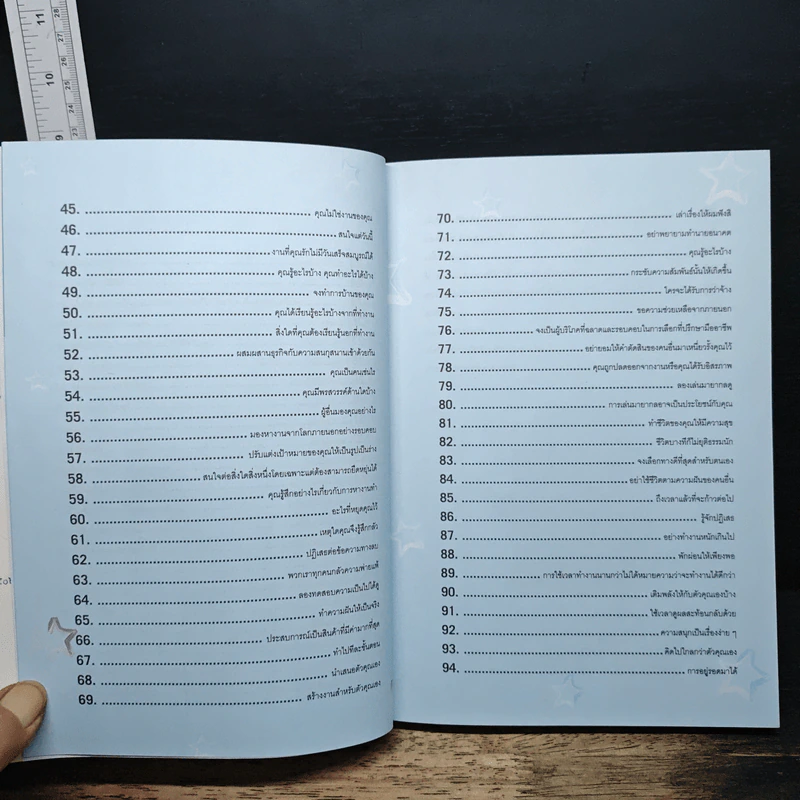 45. คุณไม่ใช่งานของคุณ
46. สนใจแต่วันนี้
47. งานที่คุณรักไม่มีวันเสร็จสมบูรณ์ได้
48. คุณรู้อะไรบ้าง คุณทำอะไรได้บ้าง
49. จงทำการบ้านของคุณ
50. คุณได้เรียนรู้อะไรบ้างจากที่ทำงาน
51. สิ่งใดที่คุณต้องเรียนรู้นอกที่ทำงาน
52. ผสมผสานธุรกิจกับความสนุกสนานเข้าด้วยกัน
53. คุณเป็นคนเช่นไร
54. คุณมีพรสวรรค์ด้านใดบ้าง
55. ผู้อื่นมองคุณอย่างไร
56. มองหางานจากโลกภายนอกอย่างรอบคอบ
57. ปรับแต่งเป้าหมายของคุณให้เป็นรูปเป็นร่าง
58. สนใจต่อสิ่งใดสิ่งหนึ่งโดยเฉพาะแต่ต้องสามารถยืดหยุ่นได้
59. คุณรู้สึกอย่างไรเกี่ยวกับการหางานทำ
60. อะไรที่หยุดคุณไว้
61. เหตุใดคุณจึงรู้สึกกลัว
62. ปฏิเสธต่อข้อความทางลบ
63. พวกเราทุกคนกลัวความพ่ายแพ้
64. ลองทดสอบความเป็นไปได้ดู
65. ทำความฝันให้เป็นจริง
66. ประสบการณ์เป็นสินค้าที่มีค่ามากที่สุด
67. ทำไปทีละขั้นตอน
68. นำเสนอตัวคุณเอง
69. สร้างงานสำหรับตัวคุณเอง
70. เล่าเรื่องให้ผมฟังสิ
71. อย่าพยายามทำนายอนาคต
72. คุณรู้อะไรบ้าง
73. กระชับความสัมพันธ์นั้นให้เกิดขึ้น
74. ใครจะได้รับการว่าจ้าง
75. ขอความช่วยเหลือจากภายนอก
76. จงเป็นผู้บริโภคที่ฉลาดและรอบคอบในการเลือกที่ปรึกษามืออาชีพ
77. อย่ายอมให้คำตัดสินของคนอื่นมาเหนี่ยวรั้งคุณไว้
78. คุณถูกปลดออกจากงานหรือคุณได้รับอิสรภาพ
79. ลองเล่นมายากลดู
80. การเล่นมายากลอาจเป็นประโยชน์กับคุณ
81. ทำชีวิตของคุณให้มีความสุข
82. ชีวิตบางทีก็ไม่ยุติธรรมนัก
83. จงเลือกทางดีที่สุดสำหรับตนเอง
84. อย่าใช้ชีวิตตามความฝันของคนอื่น
85. ถึงเวลาแล้วที่จะก้าวต่อไป
86. รู้จักปฏิเสธ
87. อย่างทำงานหนักเกินไป
88. พักผ่อนให้เพียงพอ
89. การใช้เวลาทำงานนานกว่าไม่ได้หมายความว่าจะทำงานได้ดีกว่า
90. เติมพลังให้กับตัวคุณเองบ้าง
91. ใช้เวลาดูผลสะท้อนกลับด้วย
92. ความสนุกเป็นเรื่องง่าย ๆ
93. คิดไปไกลกว่าตัวคุณเอง
94. การอยู่รอดมาได้